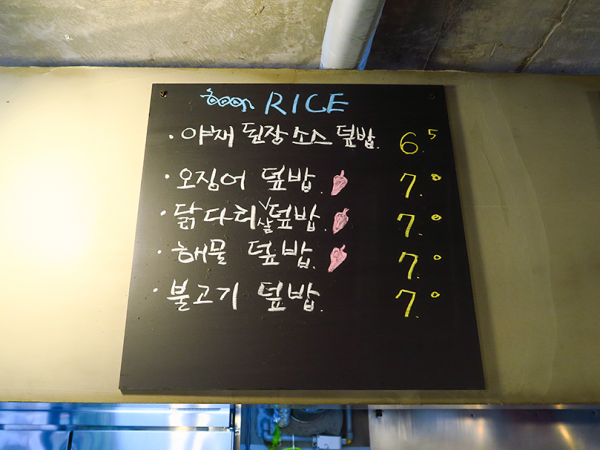 RICE
· 야채 된장 소스 덮밥. 6.5
· 오징어 덮밥. 7.0
· 닭다리살 덮밥. 7.0
· 해물 덮밥. 7.0
· 불고기 덮밥. 7.0